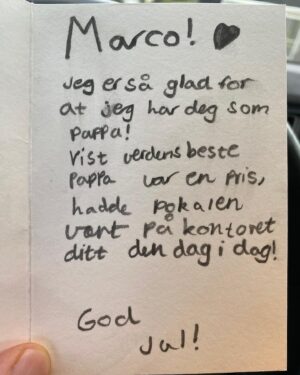 Marco! ♥
Jeg er så glad for
at jeg har deg som
pappa!
Vist verdens beste
pappa var en pris,
hadde pokalen
vært på kontoret
ditt den dag i dag!
God
Jul!